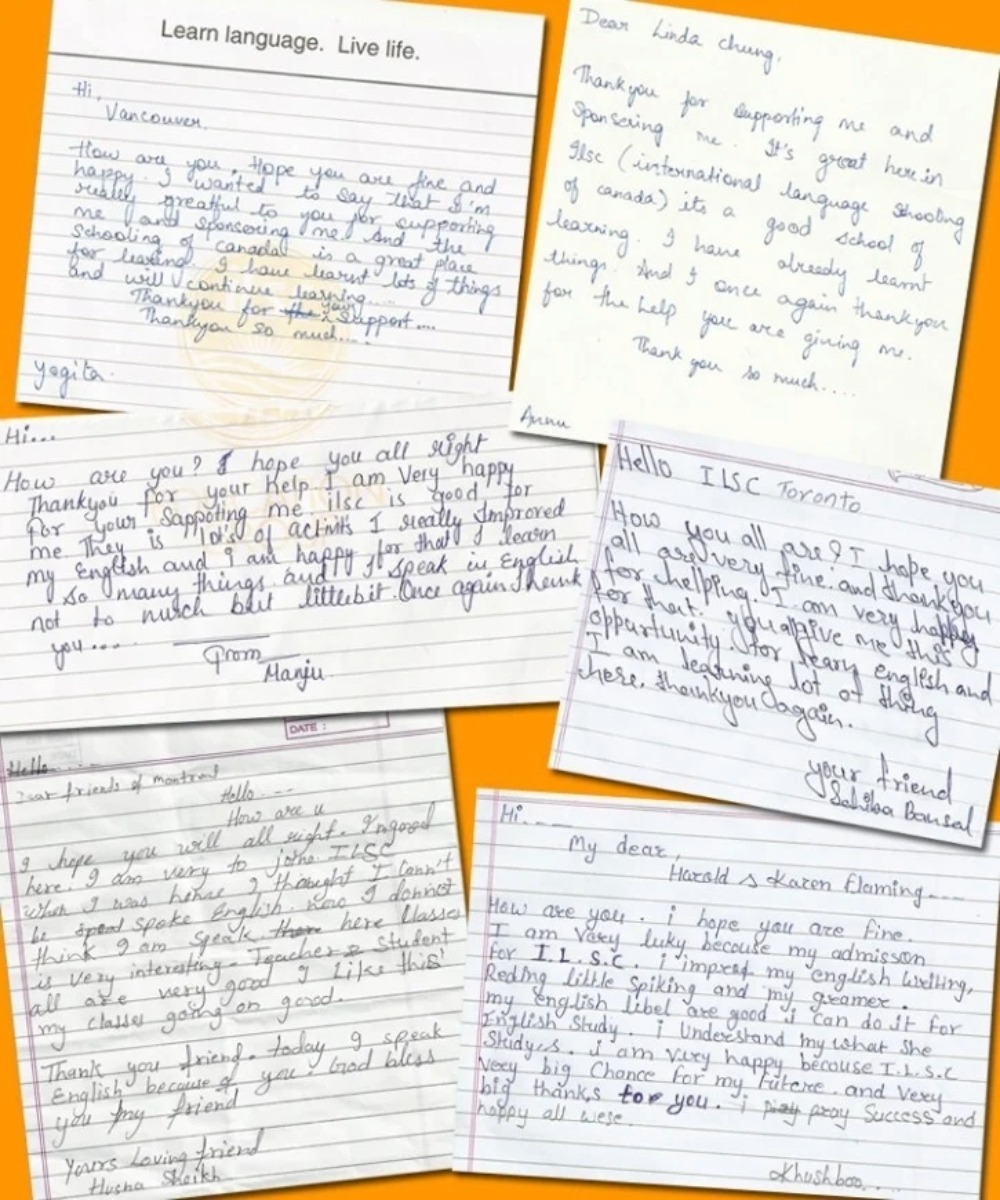 Learn language. Live life.
Hi,
Vancouver.
How are you. Hope you are fine and
happy. I wanted to say that I'm
really greatful to you for supporting
me and sponsering me. And the
schooling of canada is a great place
for learing. I have learnt lots of things
and will continue learning....
Thankyou for the your support....
Thankyou so much.....
Yogita.
Dear Linda chung,
Thankyou for supporting me and
Sponsering me. It's great here in
Ilsc (international language schooling
of canada) its a good school of
learning. I have already learnt
things. And I once again thankyou
for the help you are giving me.
Thank you so much....
Annu
Hi...
How are you? I hope you all right
Thankyou for your help. I am Very happy
for your sappoting me. ilsc is good for
me They is lot's of activits I really Improved
my English and i am happy for that I learn
so many things and I speak in English
not to much but littlebit. Once again Thenk
you....
From
Manju
Hello ILSC Toronto
How you all are? I hope you
all are very fine. and thankyou
for helping. I am very happy
for that. you give me this
opportunity for leary english and
I am learning lot of thing
here. thankyou again.
your friend
Sahiba Bansal
DATE :
Hello.....
Dear friends of montreal
Hello....
How are u
I hope you will all right. I'm good
here. I am very to join ILSC
when I was hence I thought I Conn't
be spoke English. now I donnot
think I am speak here Classes
is very interesting - Teacher & Student
all are very good I Like this
my Classes going on good.
Thank you friend. today I speak
English because of you. God bless
you my friend
Yours Loving friend
Husna Sheikh
Hi....
My dear,
Harold & Karen flaming....
How are you. i hope you are fine.
I am Vary luky becouse my admisson
for I.L.S.C. i impref my english Writing,
Reding little Spiking and my greamer.
my english libel are good i can do it for
English Study. i Understand my what She
Studyes. i am very happy becouse I.L.S.C
very big Chance for my Futere. and Very
big thanks for you. i pray Success and
happy all wese.
Khushboo...